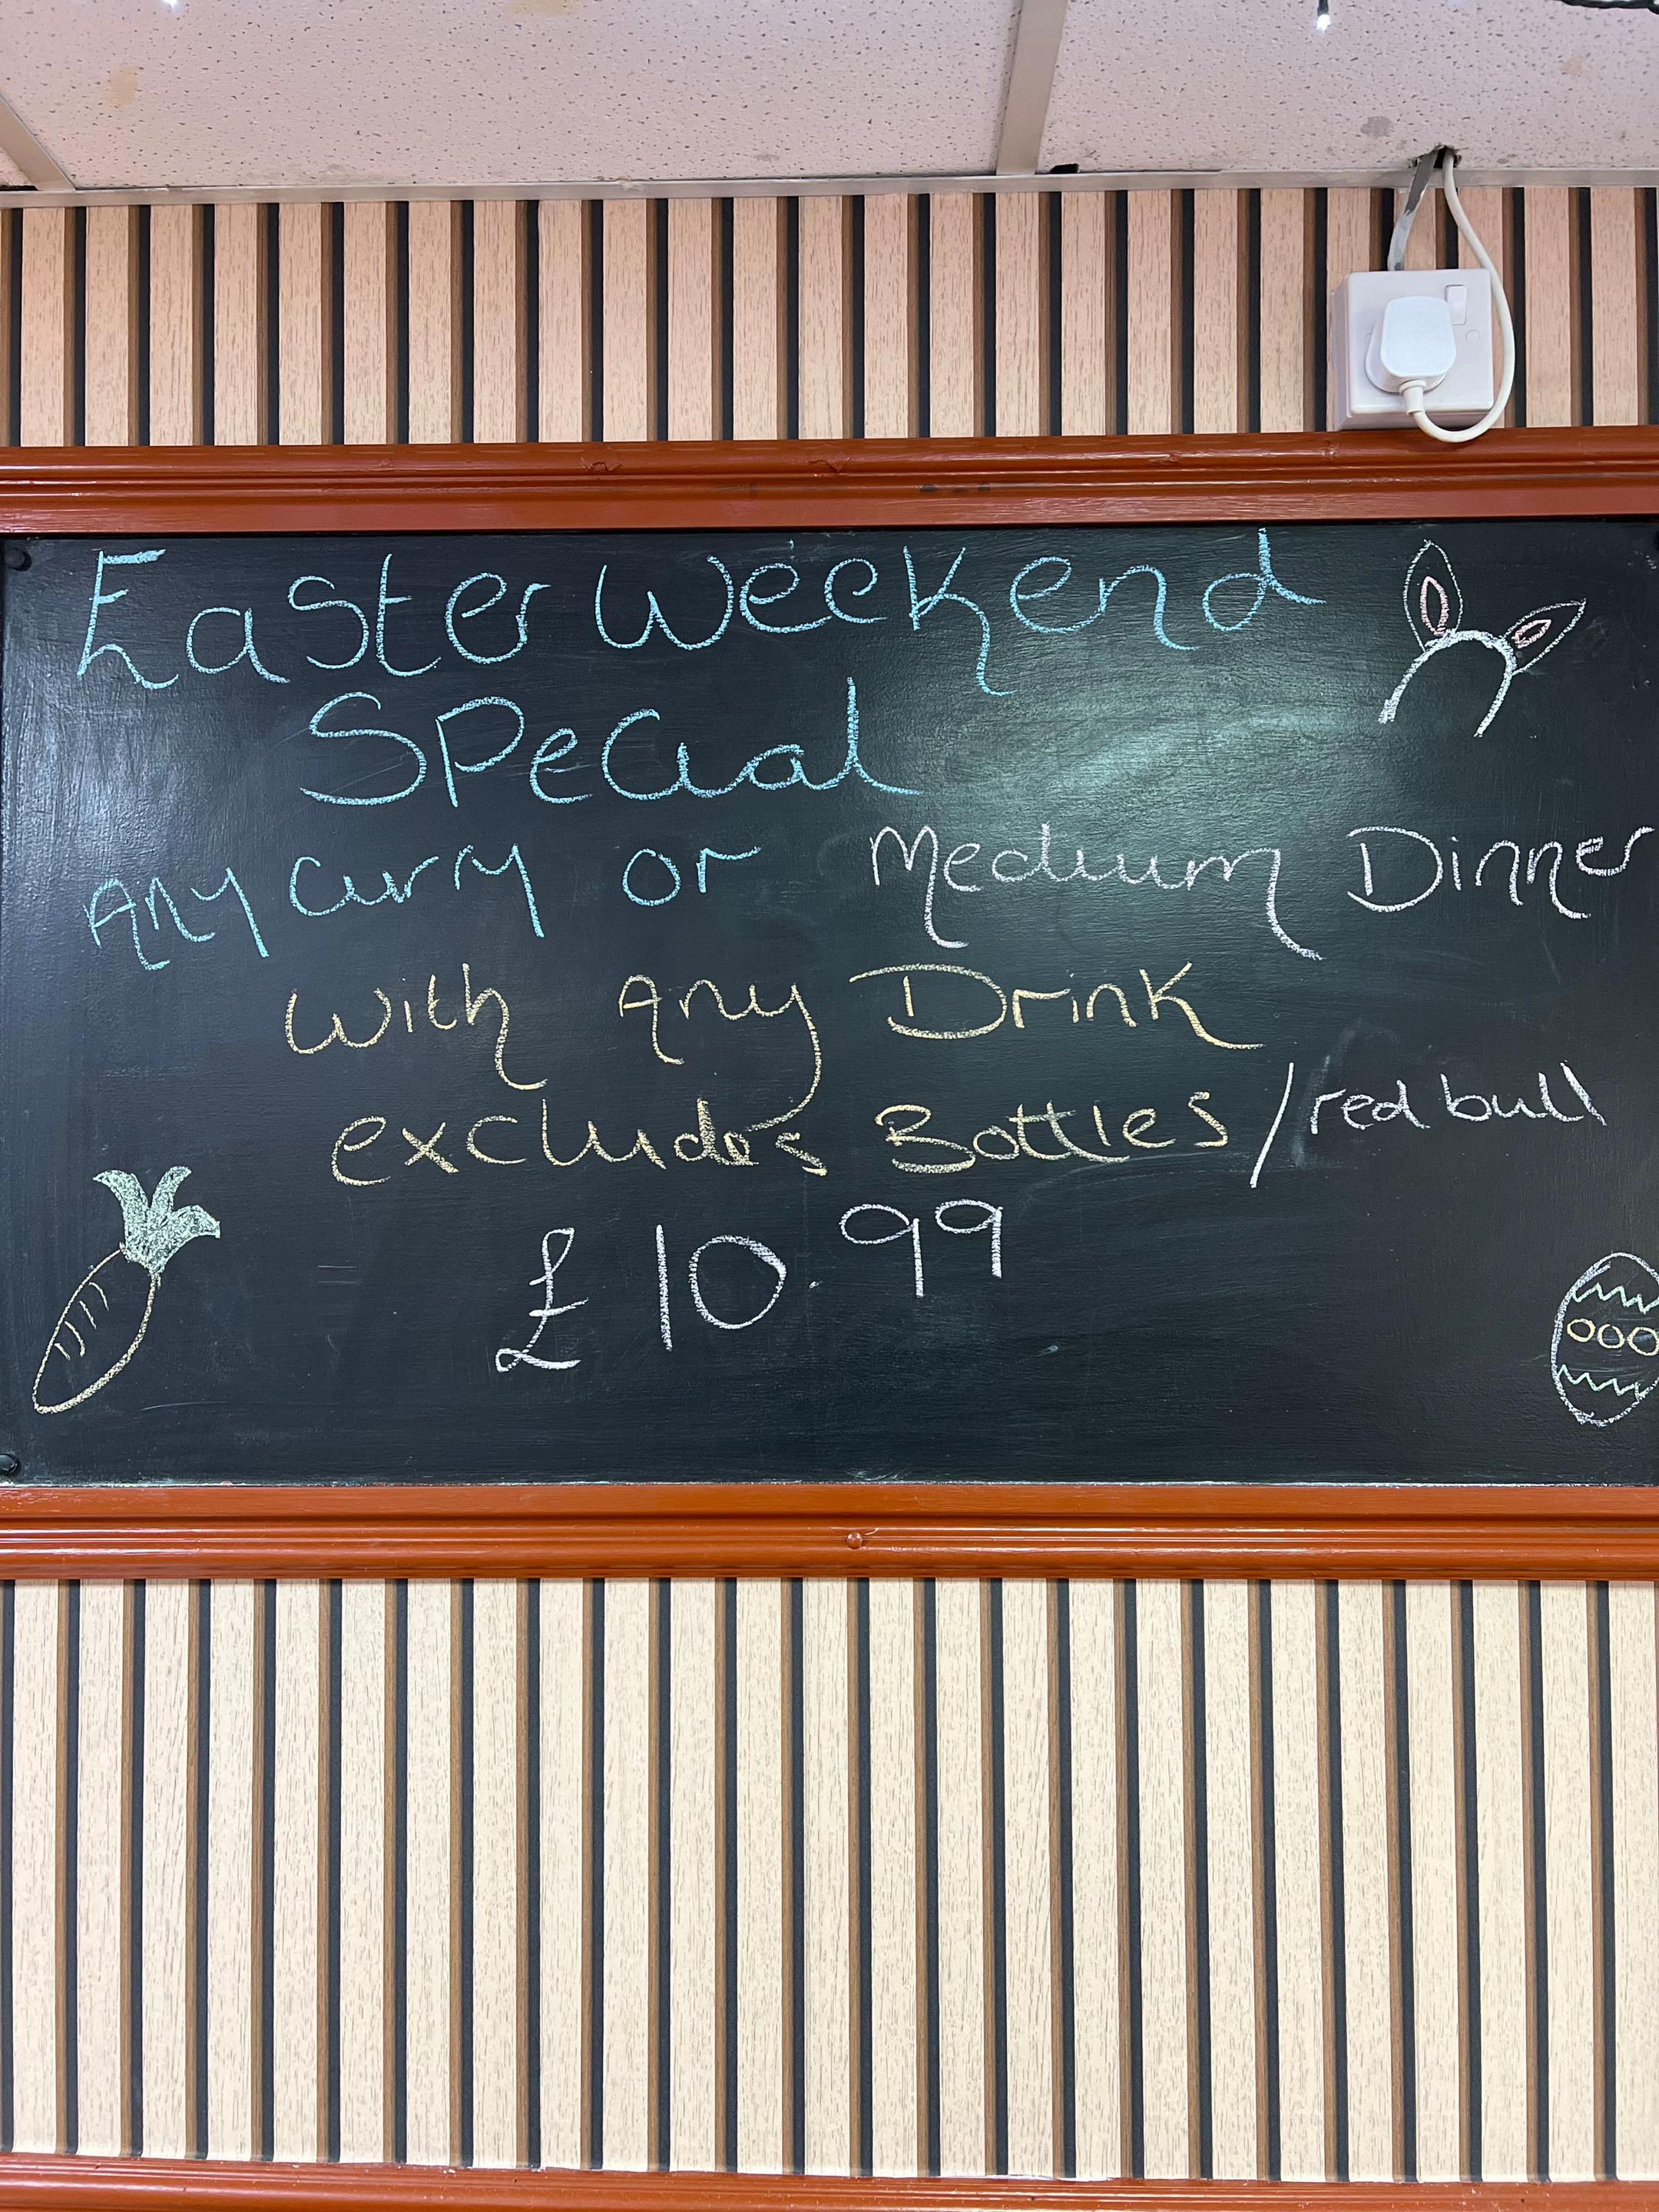 Easter Weekend
Special
Any Curry or Medium Dinner
with Any Drink
excludes Bottles/red bull
£10.99